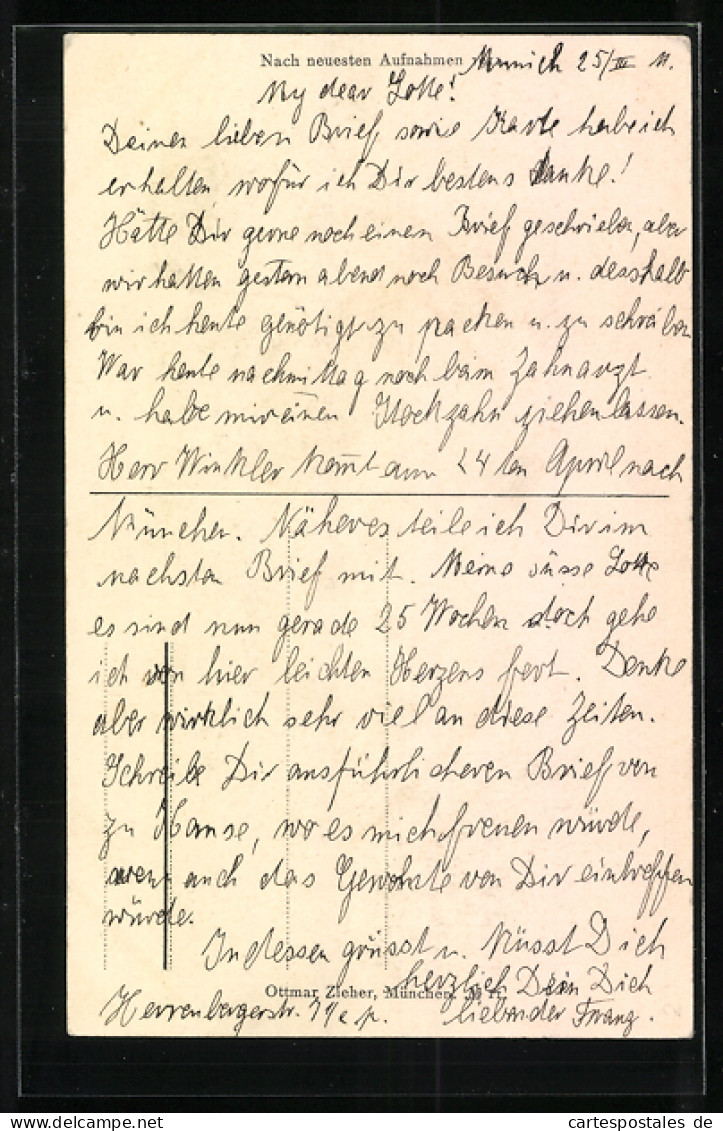 Nach neuesten Aufnahmen
Munich 25/III 11.
My dear Lotte!
Deinen lieben Brief, sowie Karte habe ich
erhalten wofür ich Dir bestens danke!
Hätte Dir gerne noch einen Brief geschrieben, aber
wir hatten gestern abend noch Besuch u. desshalb
bin ich heute genötigt zu packen u. zu schreiben
War heute nachmittag noch beim Zahnarzt
u. habe mir einen Stockzahn ziehen lassen.
Herr Winkler kom̅t am 24ten April nach
München. Näheres teile ich Dir im
nächsten Brief mit. Meine süsse Lotte
es sind nun gerade 25 Wochen doch gehe
ich von hier leichten Herzens fort. Denke
aber wirklich sehr viel an diese Zeiten.
Schreibe Dir ausführlicheren Brief von
zu Hause, wo es mich freuen würde,
wenn auch das Gewohnte von Dir eintreffen
würde.
Indessen grüsst u. küsst Dich
herzlich Dein Dich
Ottmar Zieher, München.
Herrenbergerstr. liebender Franz.
cartespostales de